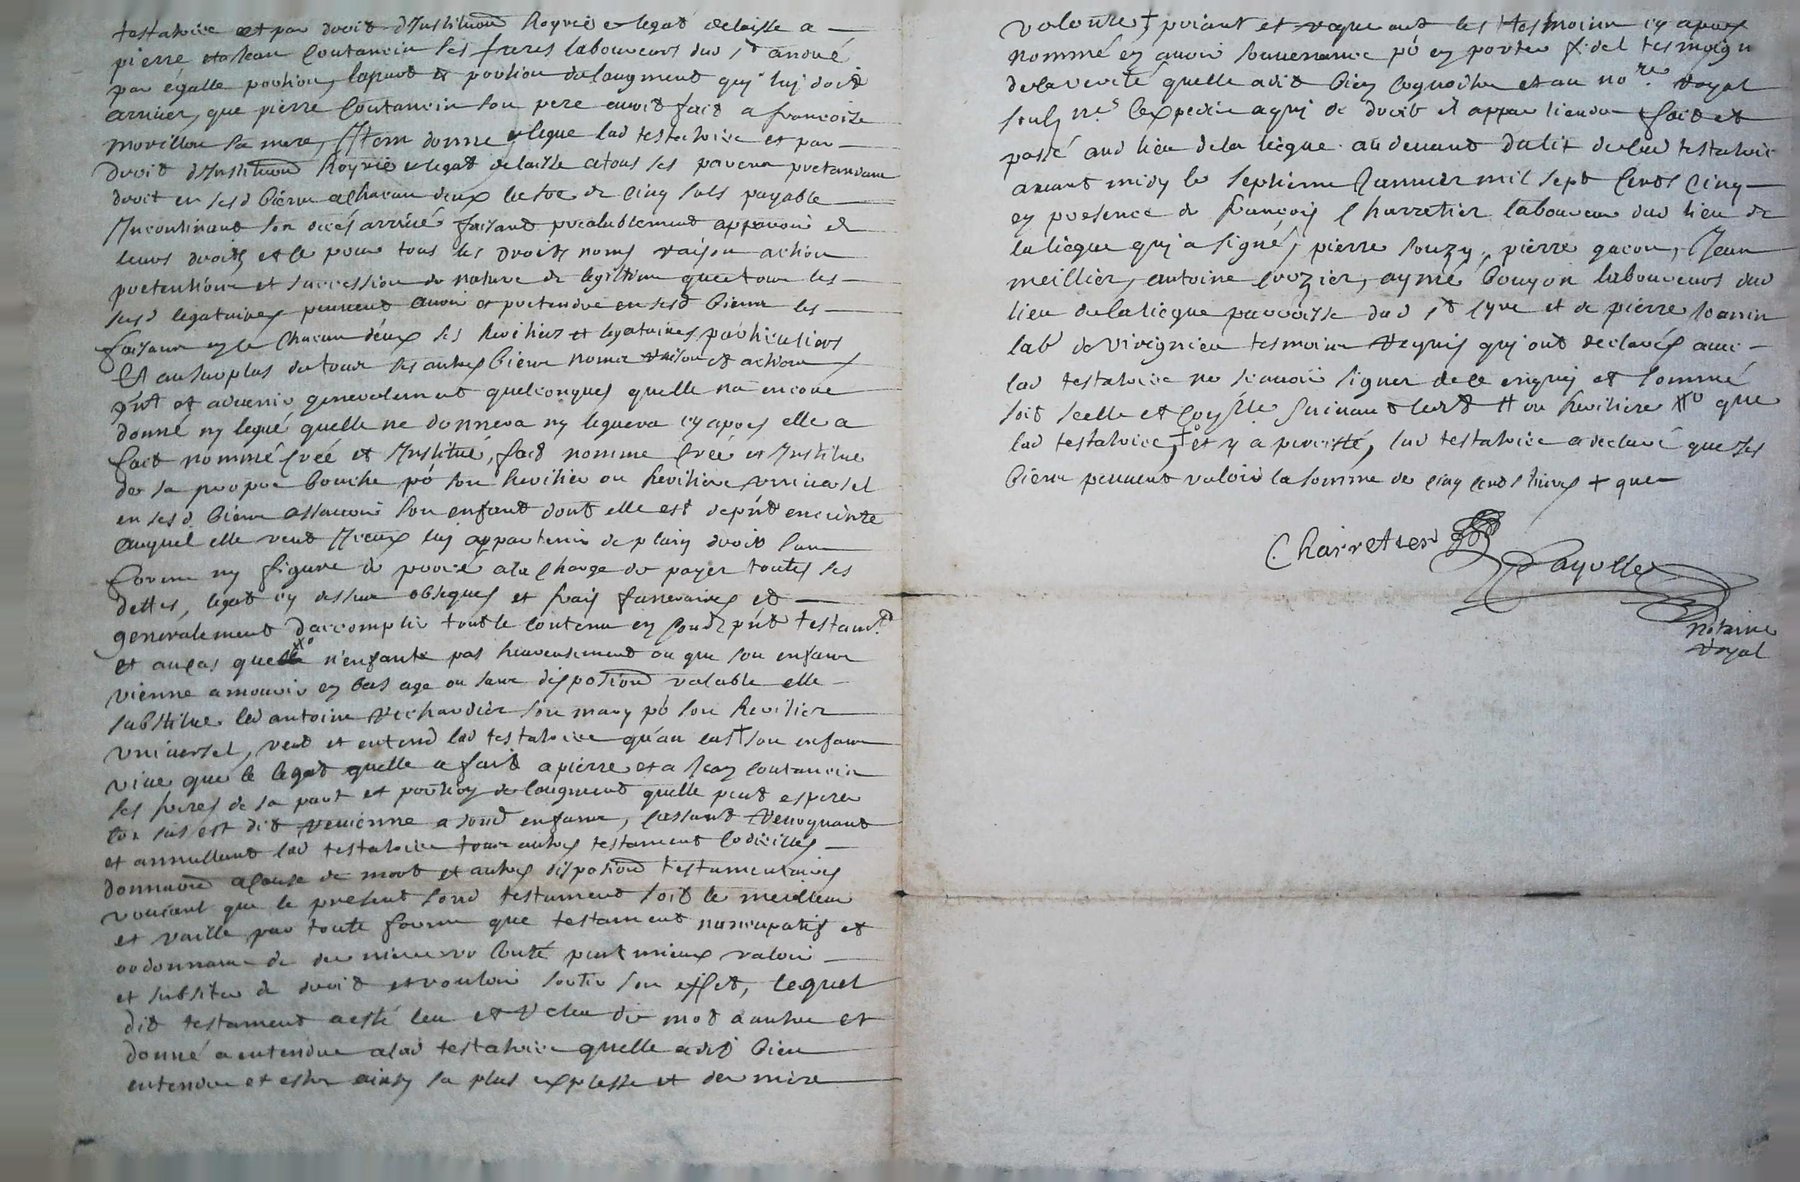 testatrice et par droit d'Institution heyrie et legat delaisse a
pierre et a Jean Coutancin ses freres laboureurs dud st andué
par égalle portion, lapart et portion de laugment quy luy doit
arriver, que pierre Coutancin son pere avoit fait a francoise
morillon sa mere, Item donne et legue lad testatrice et par
droit d'Institution heyrie et legat delaisse atous ses parens pretandans
droit en sesd biens a chacun deux la soe de cinq sols payable
Incontinant son deces arrivé faisant prealablement apparoir de
leurs droits et ce pour tous les droits noms raison action
pretentions et succession de nature de legitime que tous les
susd legataires peuvent avoir et pretendre en sesd biens les
faisant en ce chacun deux ses heritiers et legataires particuliers
Et au surplus de tous ses autres biens noms raison et actions
pnts et advenir generalement quelconques quelle na encore
donné ny legué quelle ne donnera ny leguera cy apres elle a
fait nommé créé et Institué, fait nomme créé et Institue
de sa propre bouche po son heritier ou heritiere universel
en sesd biens assavoir son enfant dont elle est depnt enceinte
auquel elle veut Iceux luy appartenir de plain droit sans
forme ny figure de proces a la charge de payer toutes ses
dettes, legat cy dessus obseques et frais funeraires et
generalement d'accomplir tout le contenu en sond pnt testamt
et au cas quelle n'enfante pas heureusement ou que son enfant
vienne a mourir en bas age ou sans disposition valable elle
substitue led antoine Rechaudier son mary po son heritier
universel, veut et entend lad testatrice qu'au cas + son enfant
vive que le legat quelle a fait a pierre et a Jean Coutancin
ses freres de sa part et portion de laugment quelle peut esperer
co sus est dit revienne a sond enfant, cassant revoquant
et annullant lad testatrice tous autres testament codicilles
donnaon acause de mort et autres disposion testamentaires
voulant que le present sond testament soit le meilleur
et vaille par toute forme que testament noncupatif et
ordonnance de derniere volonté peut mieux valoir
et subsiter de droit et vouloir sortir son effet, lequel
dit testament a esté leu et releu de mot a autre et
donné a entendre alad testatrice quelle a dit bien
entendre et estre ainsy sa plus expresse et derniere
volonte + priant et requerant les tesmoins cy apres
nommé en avoir souvenance po en porter fidel tesmoign
de la verité quelle a dit bien cognoitre et au nore royal
soubne lexpedier a quy de droit il appartiendra fait et
passé aud lieu de la liegue au devant du lit de lad testatrice
avant midy le septieme Janvier mil sept cents cinq
en presence de françois Charretier laboureur dud lieu de
la liegue quy a signé, pierre Souzy, pierre gacon, Jean
meillier, antoine crozier, aymé bouyon laboureurs dud
lieu de la liegue parroisse dud st Cyre et de pierre Joanin
labr de virignieu tesmoins requis quy ont declares avec
lad testatrice ne scavoir signer de ce enquis et sommé
soit scellé et suivant led ou heritiere xxo que
lad testatrice, +o et y a percisté, lad testatrice a declaré que ses
biens peuvent valoir la somme de cinq cents livres + que
Charretier
Payolle
Notaire
royal